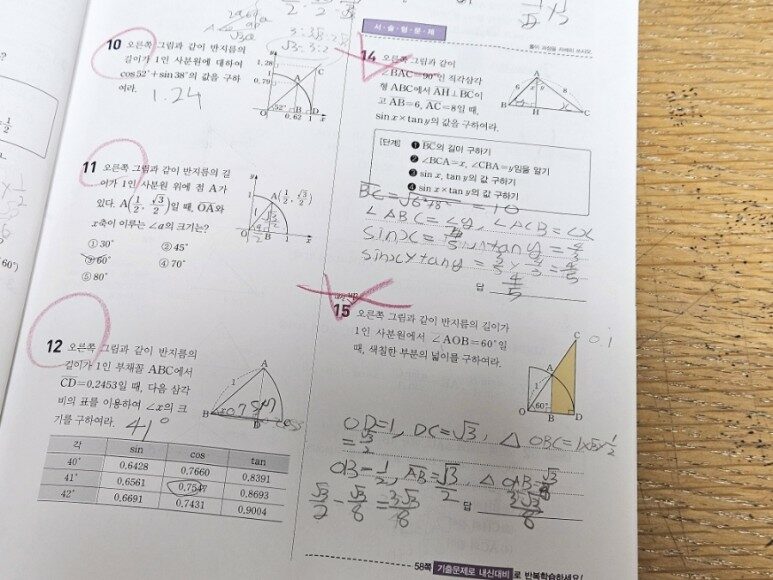 10 오른쪽 그림과 같이 반지름의
길이가 1인 사분원에 대하여
cos52°+sin38°의 값을 구하
여라.
1.24
1.28
1
0.79
52°
O
A
B
C
D
0.62
1
x
y
11 오른쪽 그림과 같이 반지름의 길
이가 1인 사분원 위에 점 A가
있다. A(1/2, √3/2)일 때, OA와
x축이 이루는 ∠a의 크기는?
① 30° ② 45°
③ 60° ④ 70°
⑤ 80°
A(1/2, √3/2)
1
O
B
1
x
y
12 오른쪽 그림과 같이 반지름의
길이가 1인 부채꼴 ABC에서
CD=0.2453일 때, 다음 삼각
비의 표를 이용하여 ∠x의 크
기를 구하여라.
41°
A
1
B
D
각 sin cos tan
40° 0.6428 0.7660 0.8391
41° 0.6561 0.7547 0.8693
42° 0.6691 0.7431 0.9004
서·술·형·문·제
풀이 과정을 자세히 쓰시오.
14 오른쪽 그림과 같이
∠BAC=90°인 직각삼각
형 ABC에서 AH⊥BC이
고 AB=6, AC=8일 때,
sin x×tan y의 값을 구하여라.
A
6
x
y
8
B
H
C
[단계] ❶ BC의 길이 구하기
❷ ∠BCA=x, ∠CBA=y임을 알기
❸ sin x, tan y의 값 구하기
❹ sin x×tan y의 값 구하기
BC=√6²+8²=10
∠ABC=∠y, ∠ACB=∠x
sinx=3/5, tany=4/3
sinx×tany=3/5×4/3=4/5
답 4/5
15 오른쪽 그림과 같이 반지름의 길이가
1인 사분원에서 ∠AOB=60°일
때, 색칠한 부분의 넓이를 구하여라.
C
A
1
60°
O
B
D
OD=1, DC=√3, △OBC=1×√3×1/2
=√3/2
OB=1/2, AB=√3/2, △OAB=√3/8
√3/2-√3/8=3√3/8
답 3√3/8
58쪽 기출문제로 내신대비 로 반복학습하세요!